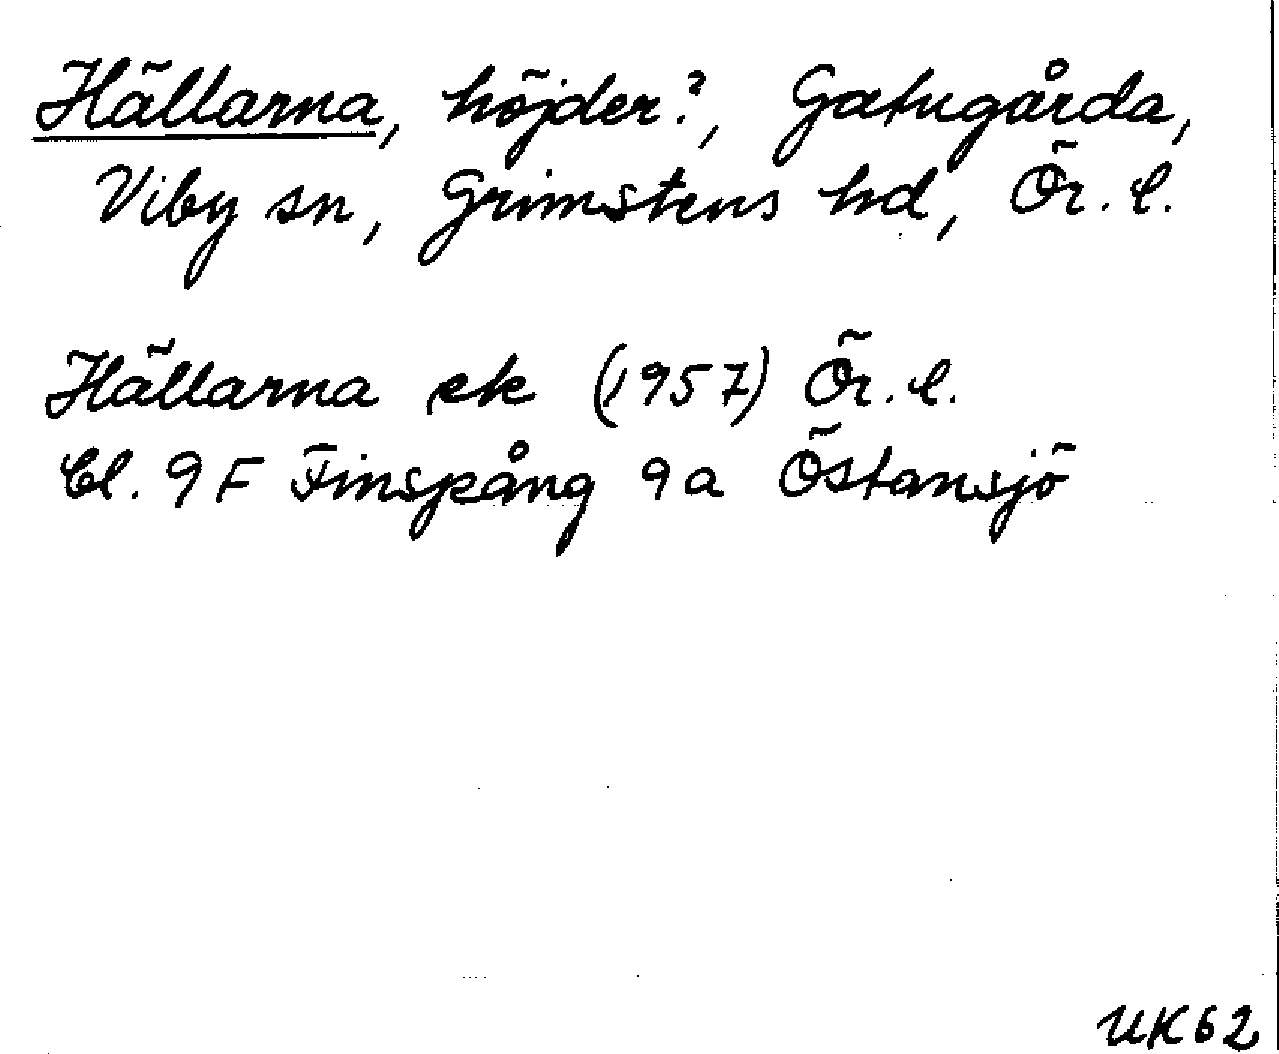 Hällarna, höjder?, Gatugårda,
Viby sn, Grimstens hd, Ör. l.
Hällarna ek (1957) Ör. l.
Bl. 9F Finspång 9a Östansjö
UK62